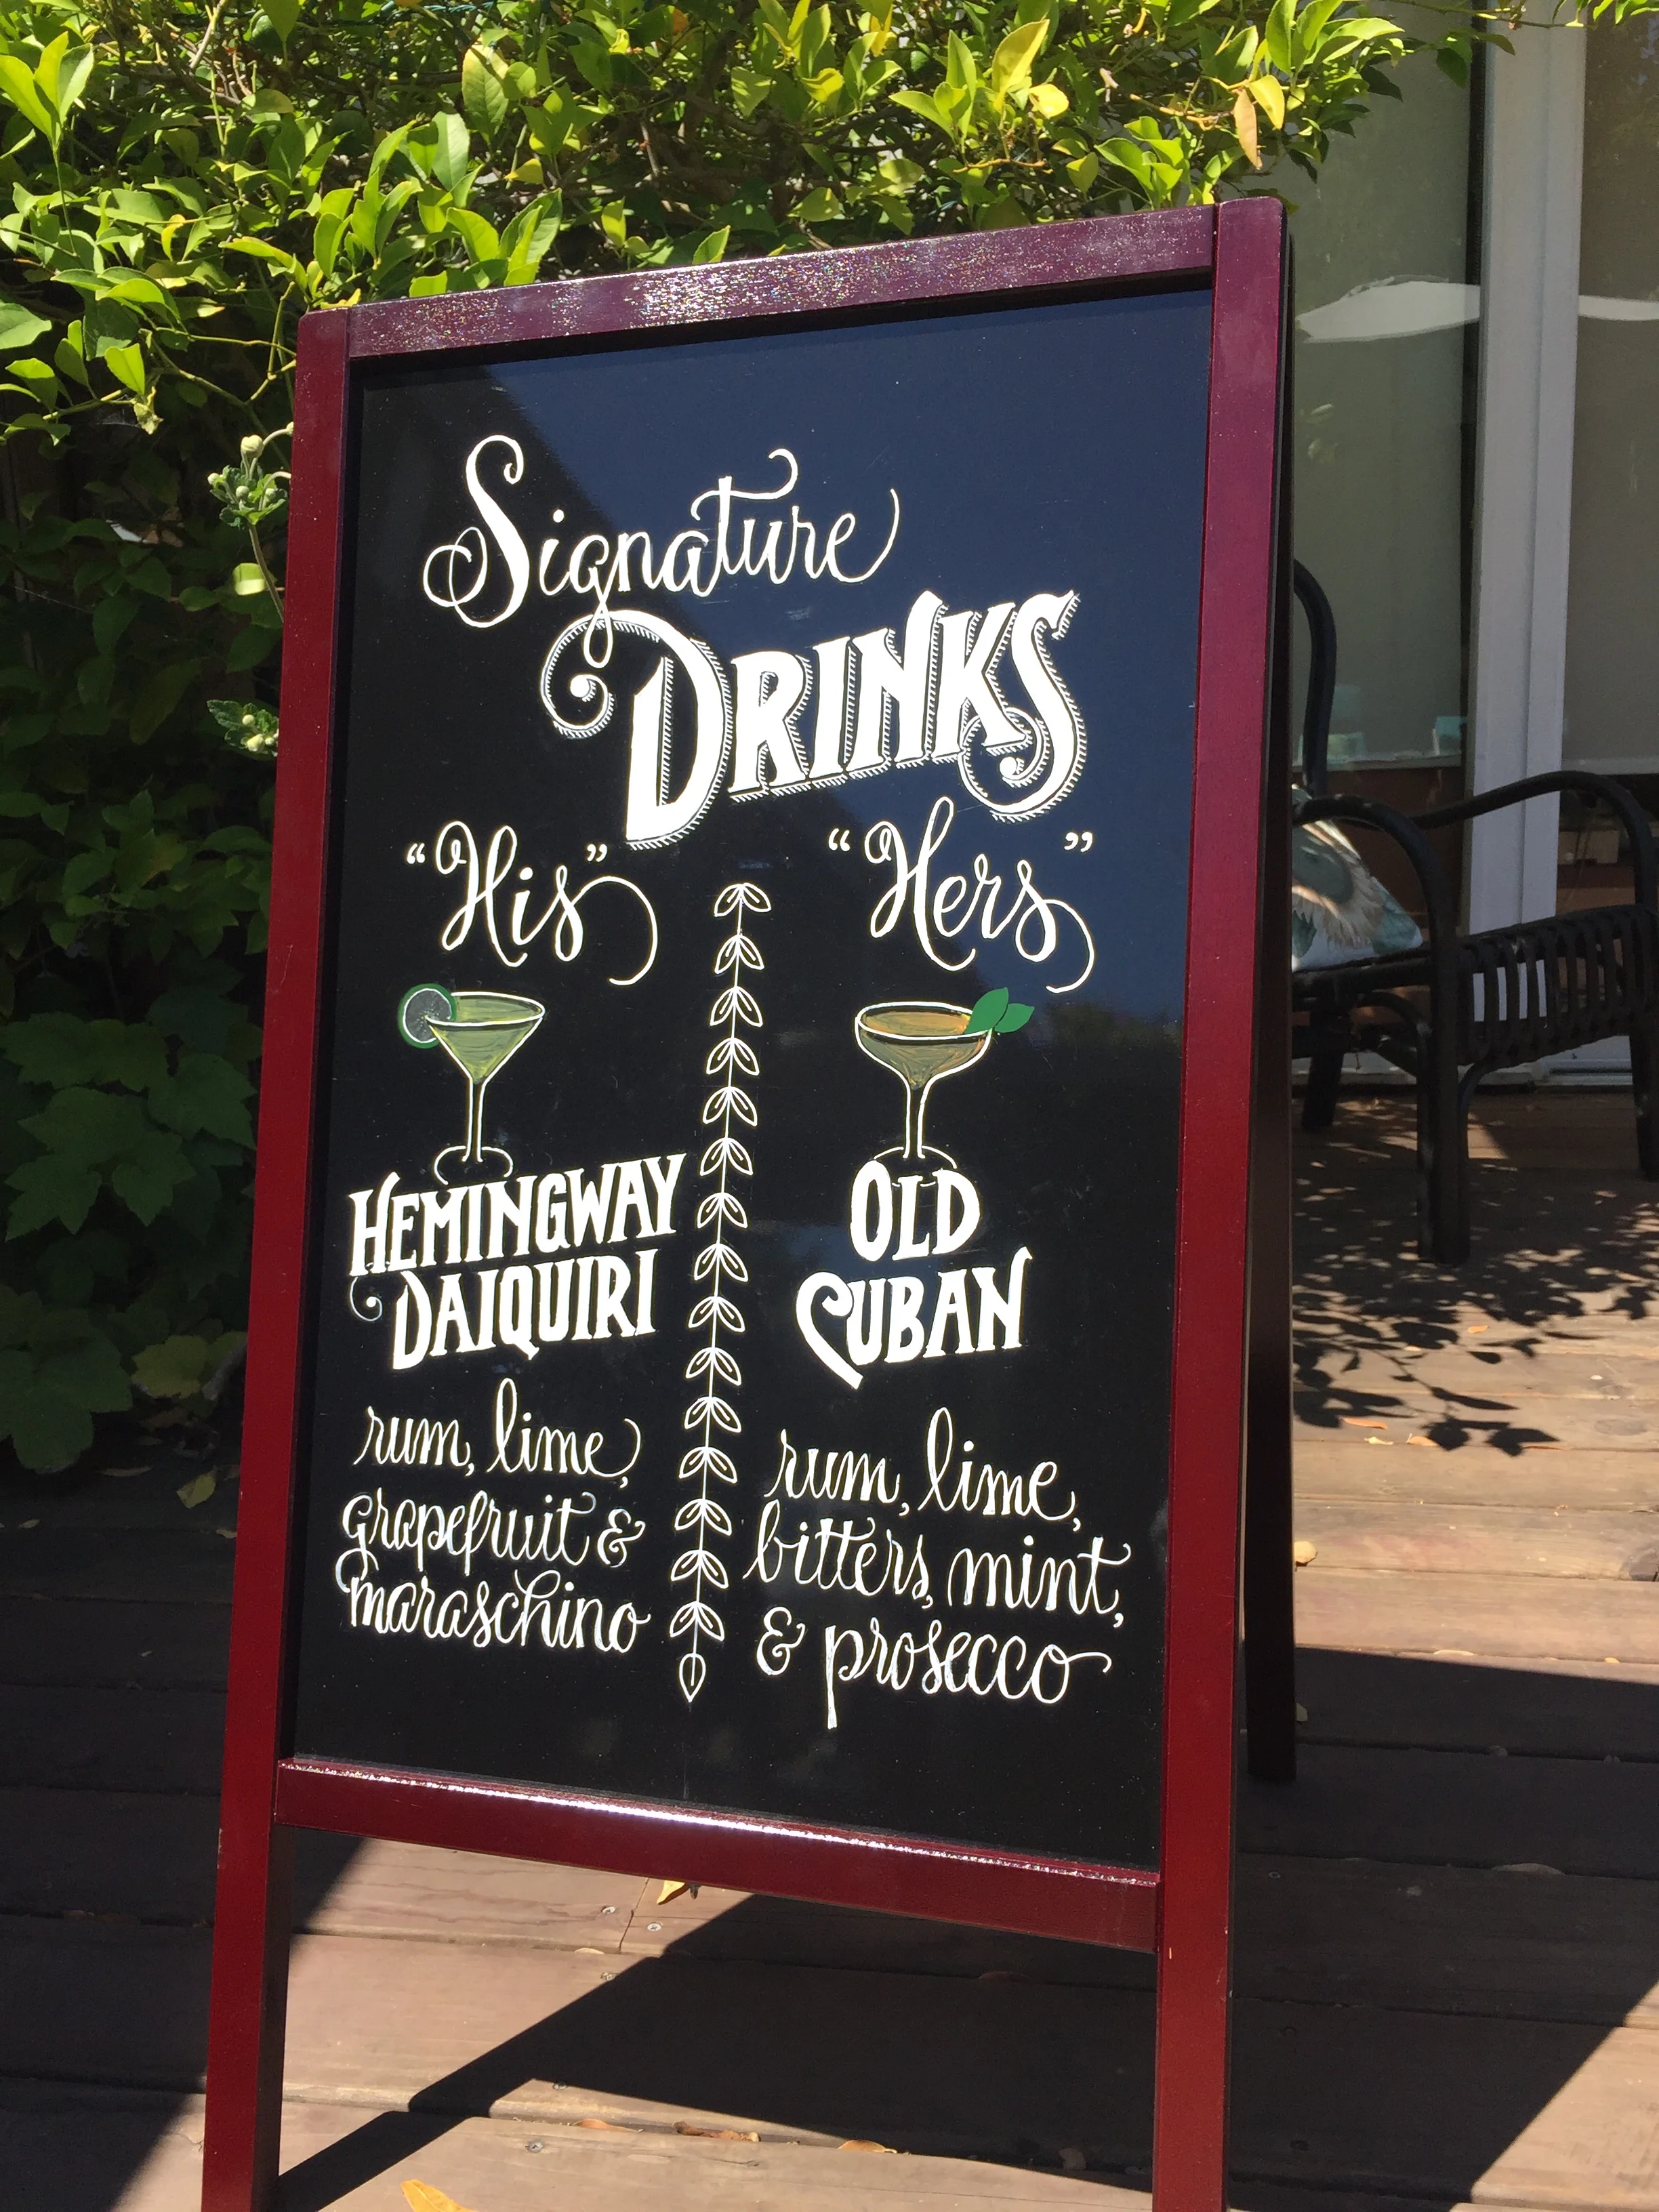 Signature
DRINKS
"His"
HEMINGWAY
DAIQUIRI
rum, lime,
grapefruit &
maraschino
"Hers"
OLD
CUBAN
rum, lime,
bitters, mint,
& prosecco